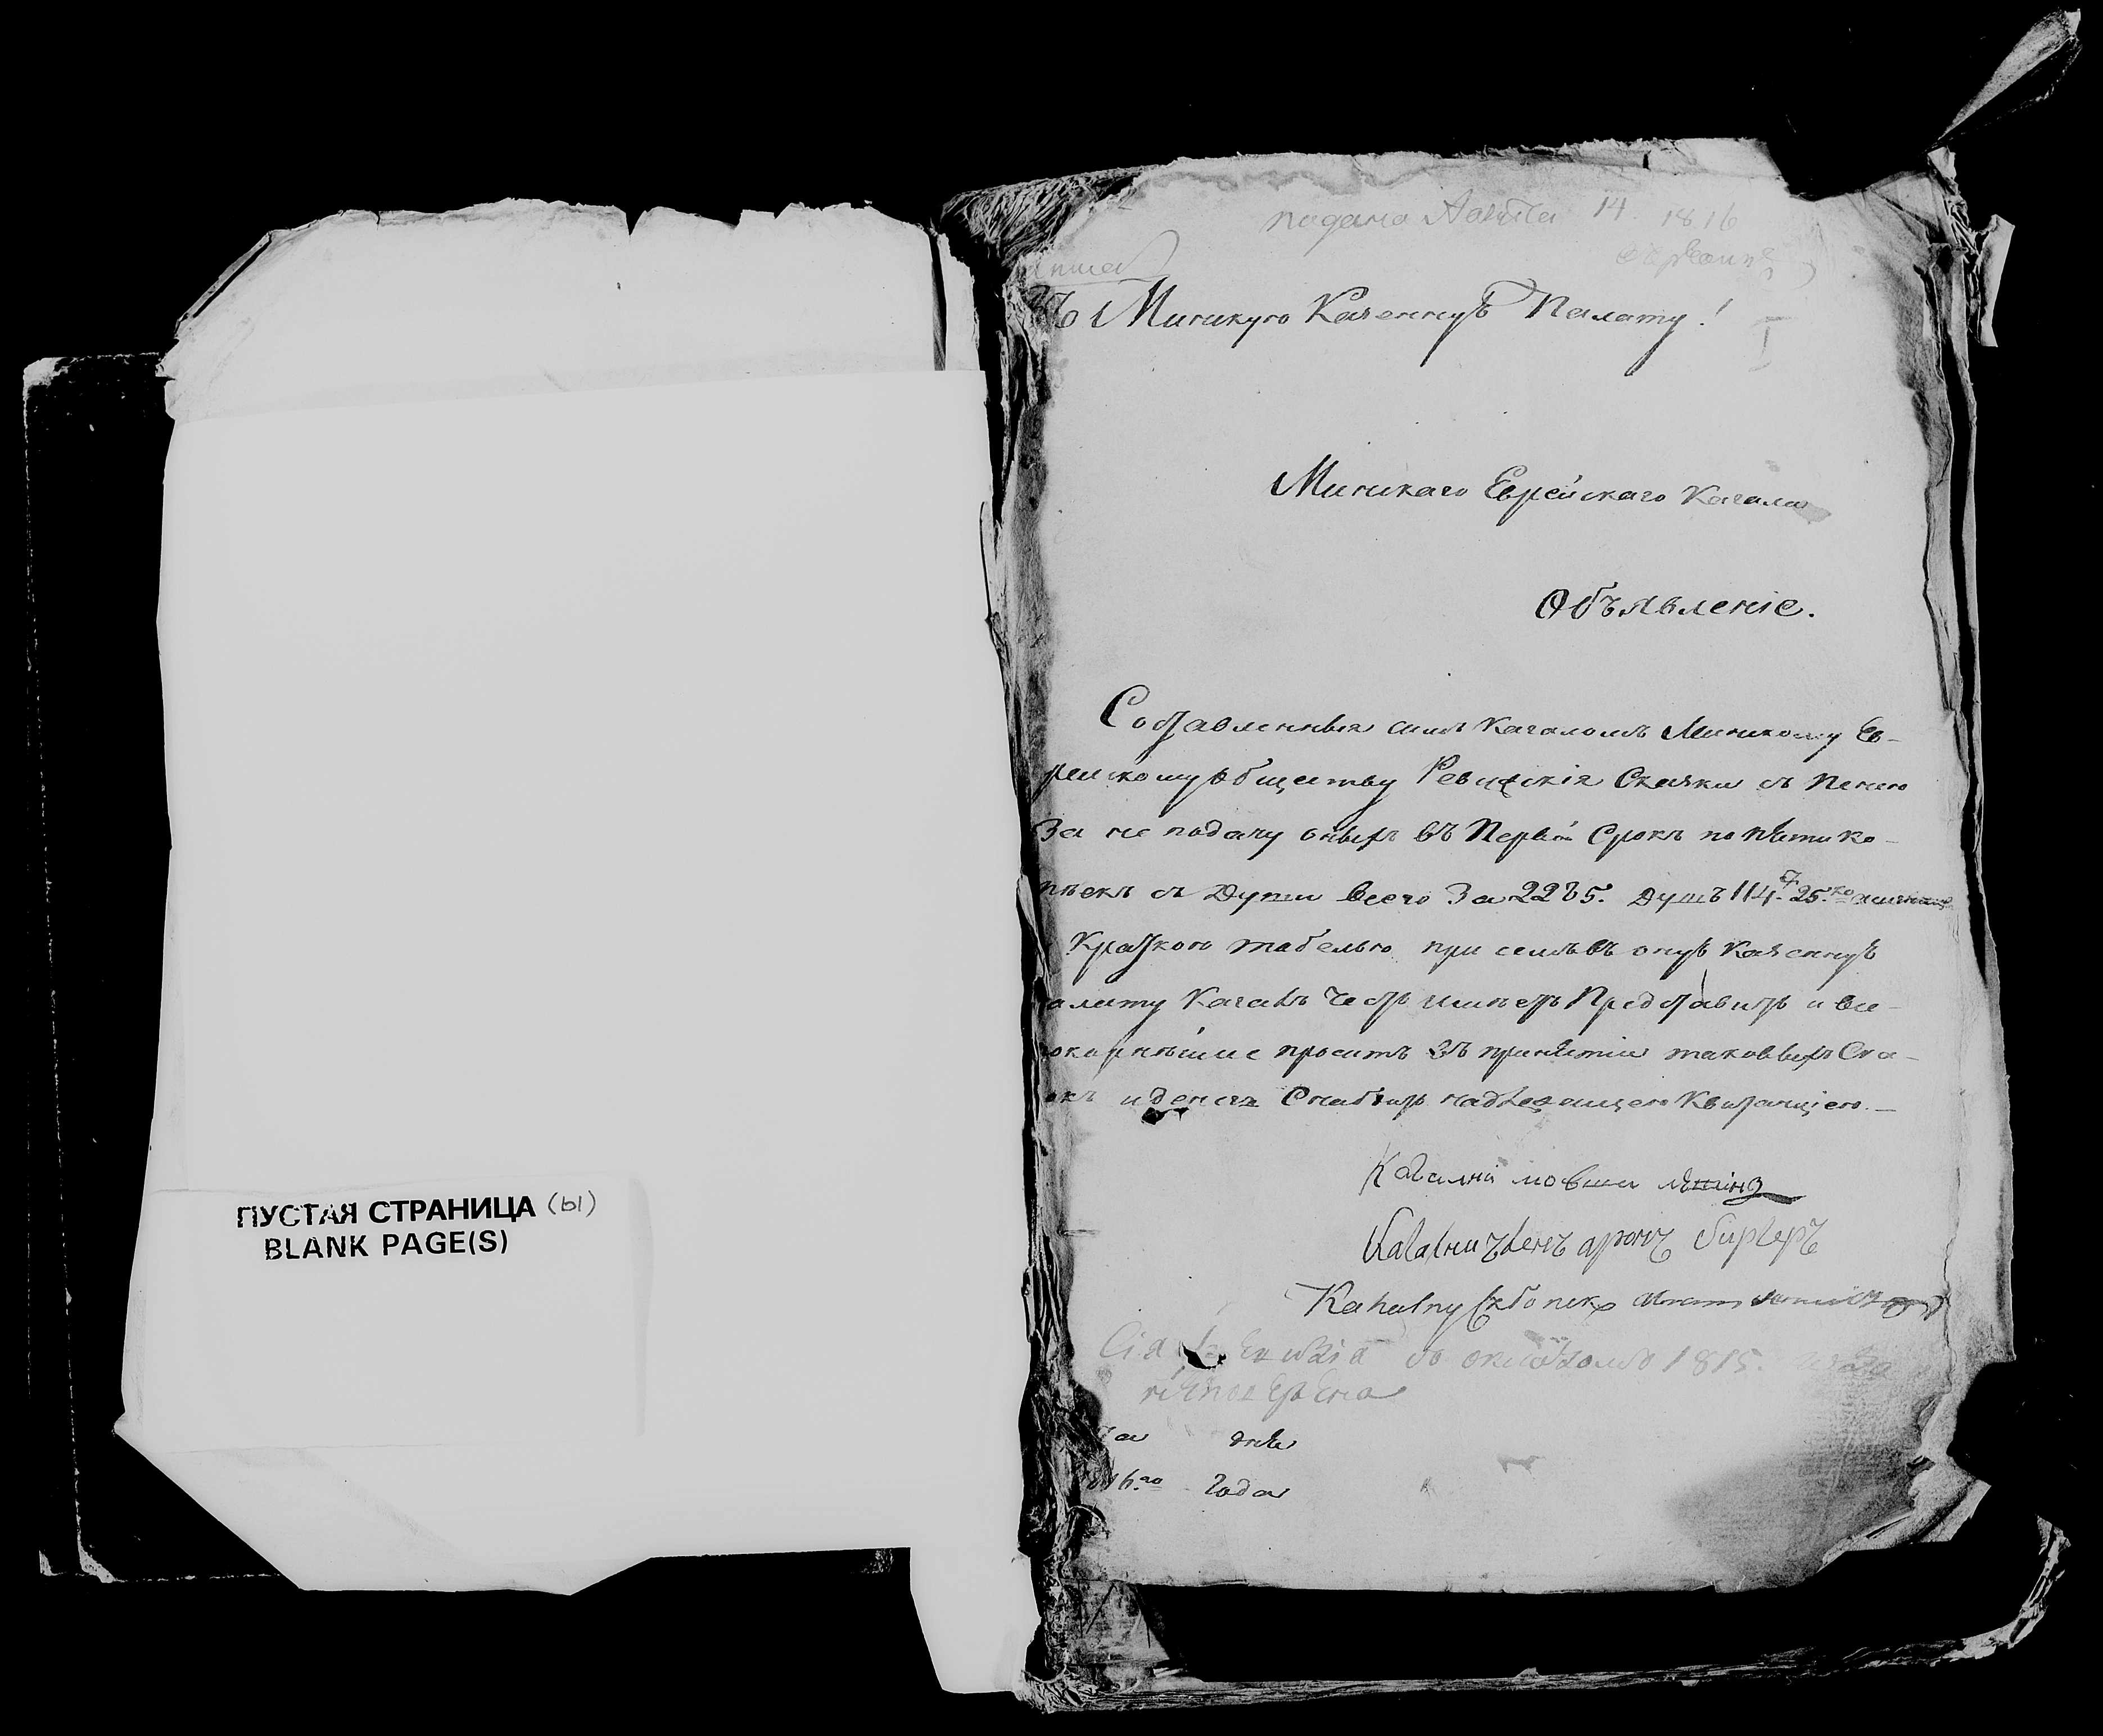 ПУСТАЯ СТРАНИЦА (ы)
BLANK PAGE(S)
подана 14. 1816
Въ Минскую Казенную Палату!
I
Минскаго Еврейскаго Кагала
Объявленіе.
Составленныя симъ Кагаломъ Минскому Ев-
рейскому Обществу Ревизскія Сказки съ Пенею
За не подачу оныхъ въ Первый Срокъ по пяти ко-
пѣекъ съ Души всего За 2285. Душъ 114. р 25. ко
Краткою табелью при семъ въ оную Казенную
алату Кагалъ Честь имѣетъ Представить и все-
окорнѣйше проситъ въ принятіи таковыхъ Ска-
окъ и денегъ Снабдить надлежащею Квитанціею. —
Кагалнй мовша
Кагални членъ аронъ
Kahalny
Сія 1815.
та дня
1816.го Года